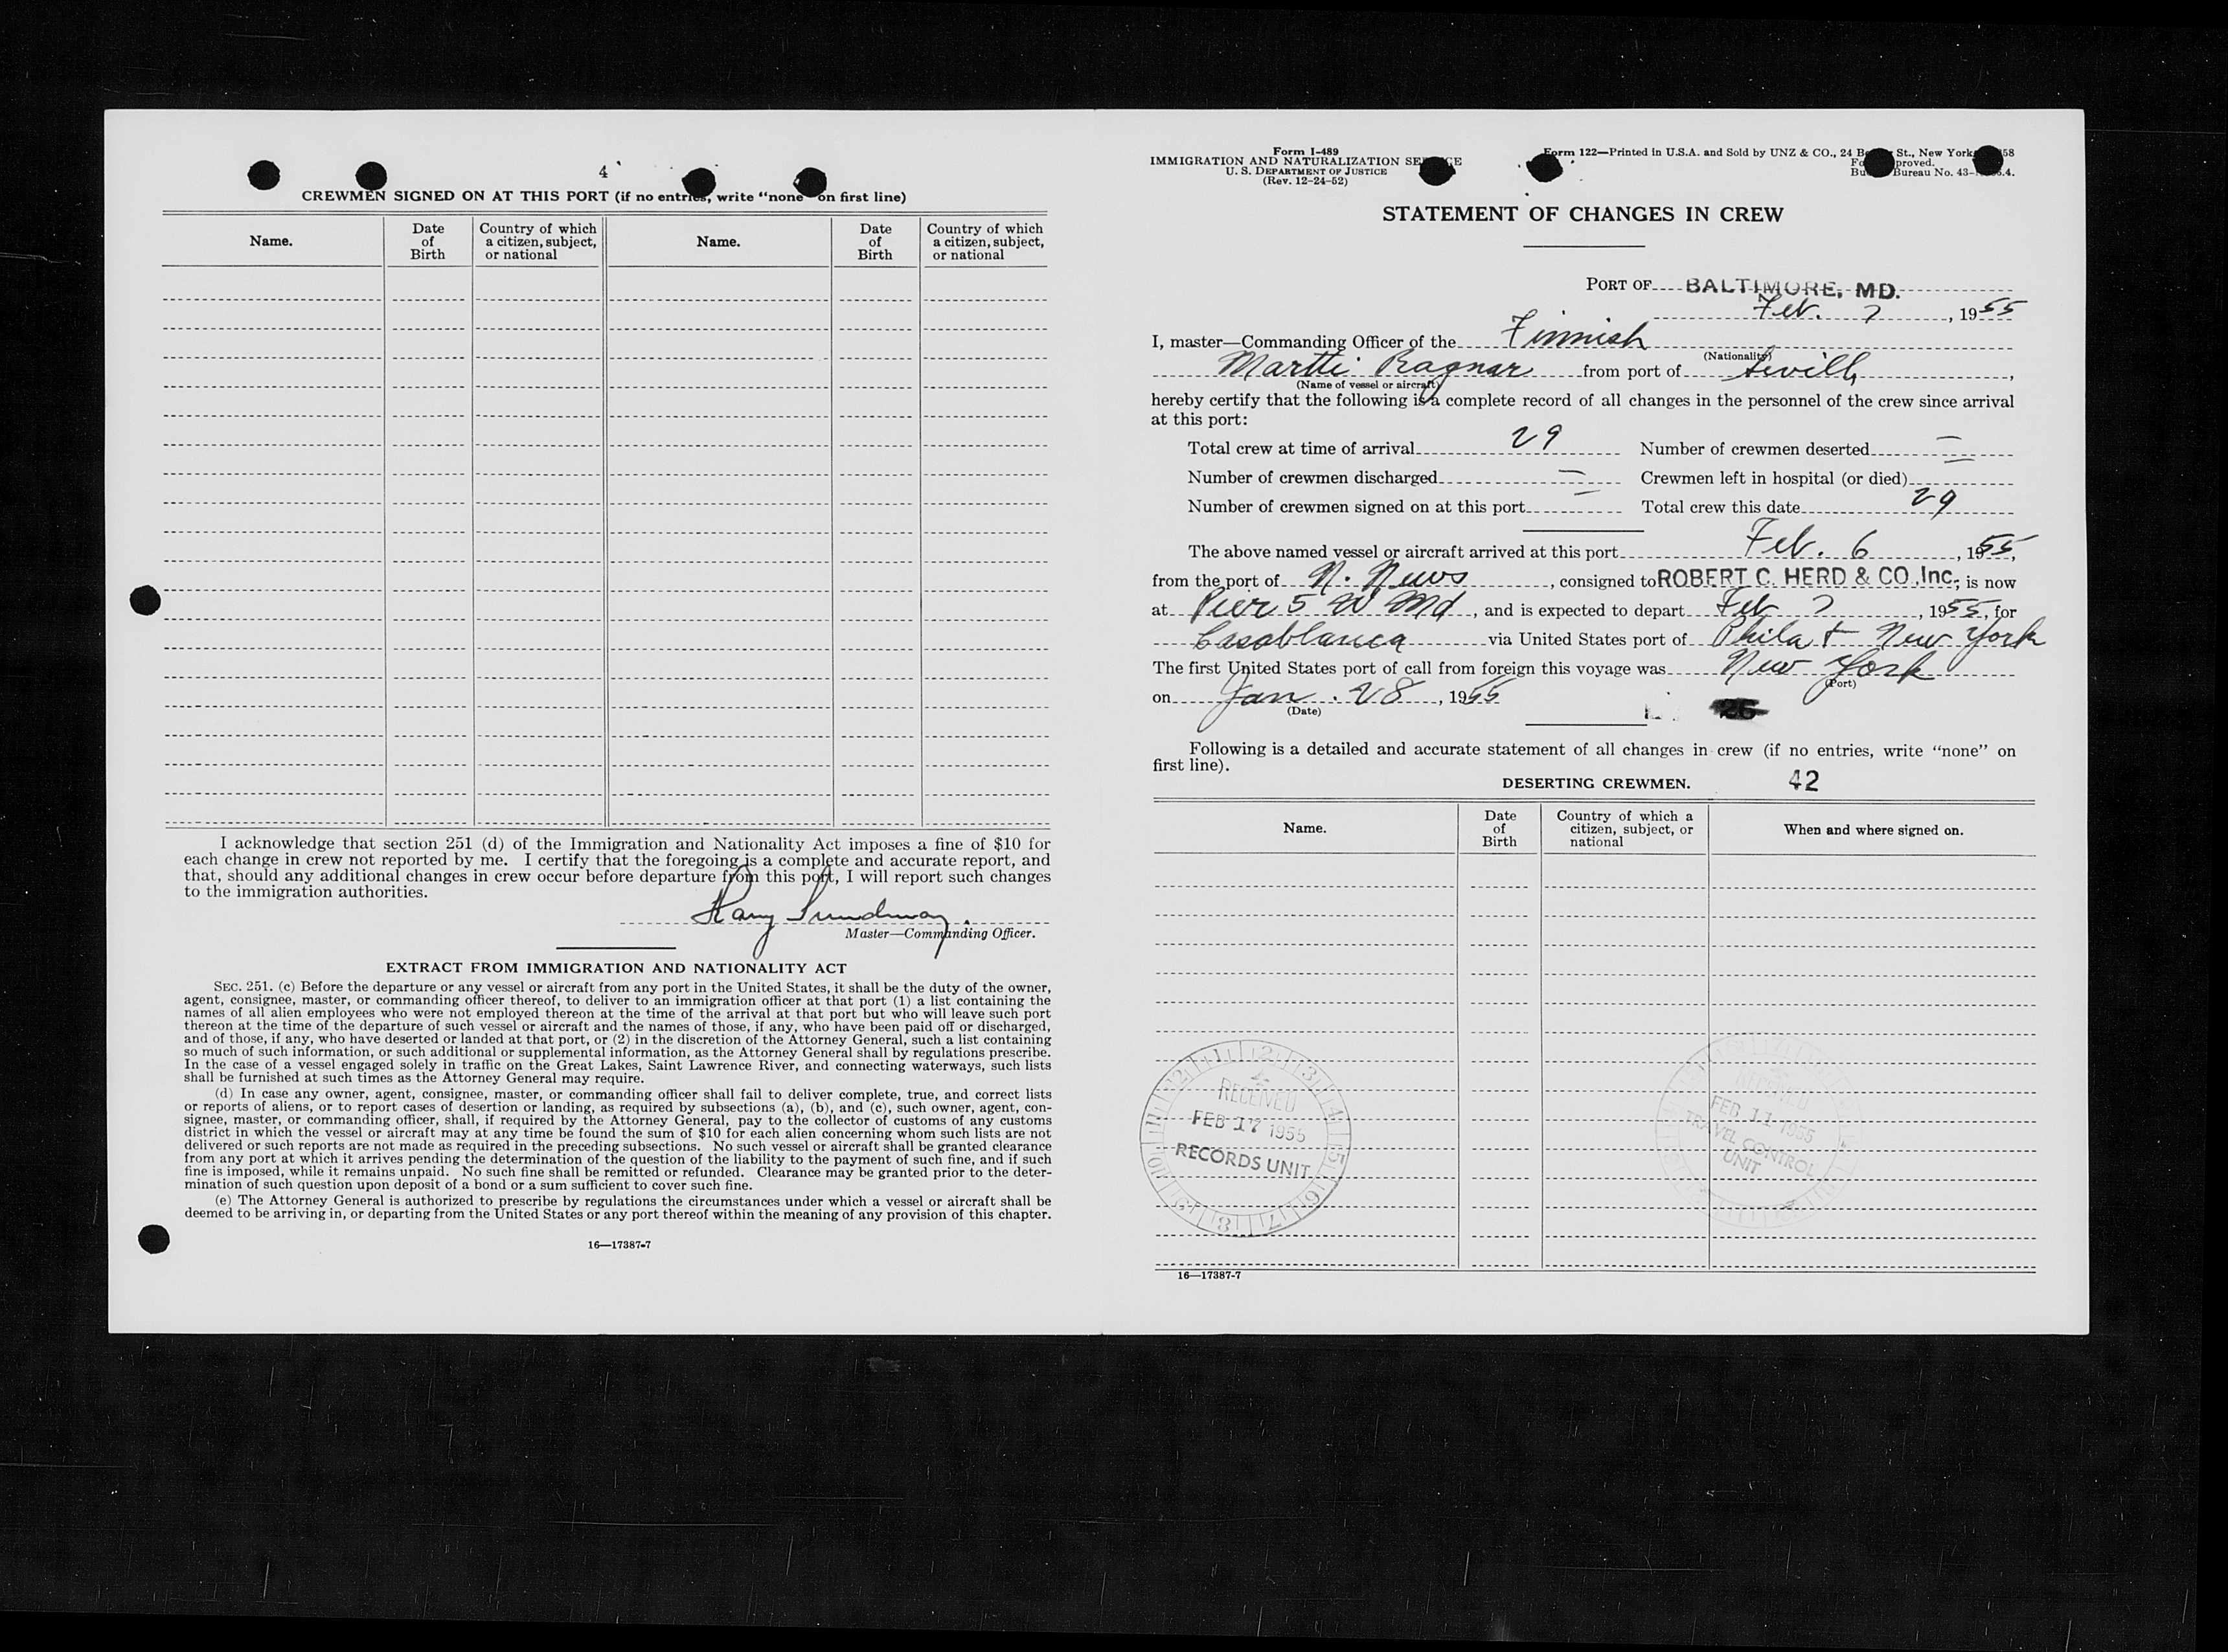 4
CREWMEN SIGNED ON AT THIS PORT (if no entries, write “none” on first line)
Name.
Date of Birth
Country of which a citizen, subject, or national
Name.
Date of Birth
Country of which a citizen, subject, or national
I acknowledge that section 251 (d) of the Immigration and Nationality Act imposes a fine of $10 for
each change in crew not reported by me. I certify that the foregoing is a complete and accurate report, and
that, should any additional changes in crew occur before departure from this port, I will report such changes
to the immigration authorities.
Master—Commanding Officer.
EXTRACT FROM IMMIGRATION AND NATIONALITY ACT
SEC. 251. (c) Before the departure or any vessel or aircraft from any port in the United States, it shall be the duty of the owner,
agent, consignee, master, or commanding officer thereof, to deliver to an immigration officer at that port (1) a list containing the
names of all alien employees who were not employed thereon at the time of the arrival at that port but who will leave such port
thereon at the time of the departure of such vessel or aircraft and the names of those, if any, who have been paid off or discharged,
and of those, if any, who have deserted or landed at that port, or (2) in the discretion of the Attorney General, such a list containing
so much of such information, or such additional or supplemental information, as the Attorney General shall by regulations prescribe.
In the case of a vessel engaged solely in traffic on the Great Lakes, Saint Lawrence River, and connecting waterways, such lists
shall be furnished at such times as the Attorney General may require.
(d) In case any owner, agent, consignee, master, or commanding officer shall fail to deliver complete, true, and correct lists
or reports of aliens, or to report cases of desertion or landing, as required by subsections (a), (b), and (c), such owner, agent, con-
signee, master, or commanding officer, shall, if required by the Attorney General, pay to the collector of customs of any customs
district in which the vessel or aircraft may at any time be found the sum of $10 for each alien concerning whom such lists are not
delivered or such reports are not made as required in the preceding subsections. No such vessel or aircraft shall be granted clearance
from any port at which it arrives pending the determination of the question of the liability to the payment of such fine, and if such
fine is imposed, while it remains unpaid. No such fine shall be remitted or refunded. Clearance may be granted prior to the deter-
mination of such question upon deposit of a bond or a sum sufficient to cover such fine.
(e) The Attorney General is authorized to prescribe by regulations the circumstances under which a vessel or aircraft shall be
deemed to be arriving in, or departing from the United States or any port thereof within the meaning of any provision of this chapter.
16—17387-7
Form I-489
IMMIGRATION AND NATURALIZATION SERVICE
U. S. DEPARTMENT OF JUSTICE
(Rev. 12-24-52)
Form 122—Printed in U.S.A. and Sold by UNZ & CO., 24 St., New York
proved.
Bureau No. 43-
STATEMENT OF CHANGES IN CREW
PORT OF BALTIMORE, MD.
Feb. 7, 1955
I, master—Commanding Officer of the Finnish
(Nationality)
Martti Ragnar from port of Seville,
(Name of vessel or aircraft)
hereby certify that the following is a complete record of all changes in the personnel of the crew since arrival
at this port:
Total crew at time of arrival 29 Number of crewmen deserted —
Number of crewmen discharged — Crewmen left in hospital (or died) —
Number of crewmen signed on at this port — Total crew this date 29
The above named vessel or aircraft arrived at this port Feb. 6, 1955,
from the port of N. News, consigned to ROBERT C. HERD & CO., Inc; is now
at Pier 5 W Md, and is expected to depart Feb 7, 1955, for
Casablanca via United States port of Phila + New York
The first United States port of call from foreign this voyage was New York
(Port)
on Jan. 28, 1955
(Date)
26
Following is a detailed and accurate statement of all changes in crew (if no entries, write “none” on
first line).
DESERTING CREWMEN. 42
Name.
Date of Birth
Country of which a citizen, subject, or national
When and where signed on.
RECEIVED
FEB 17 1955
RECORDS UNIT
RECEIVED
FEB 11 1955
TRAVEL CONTROL
UNIT
16—17387-7